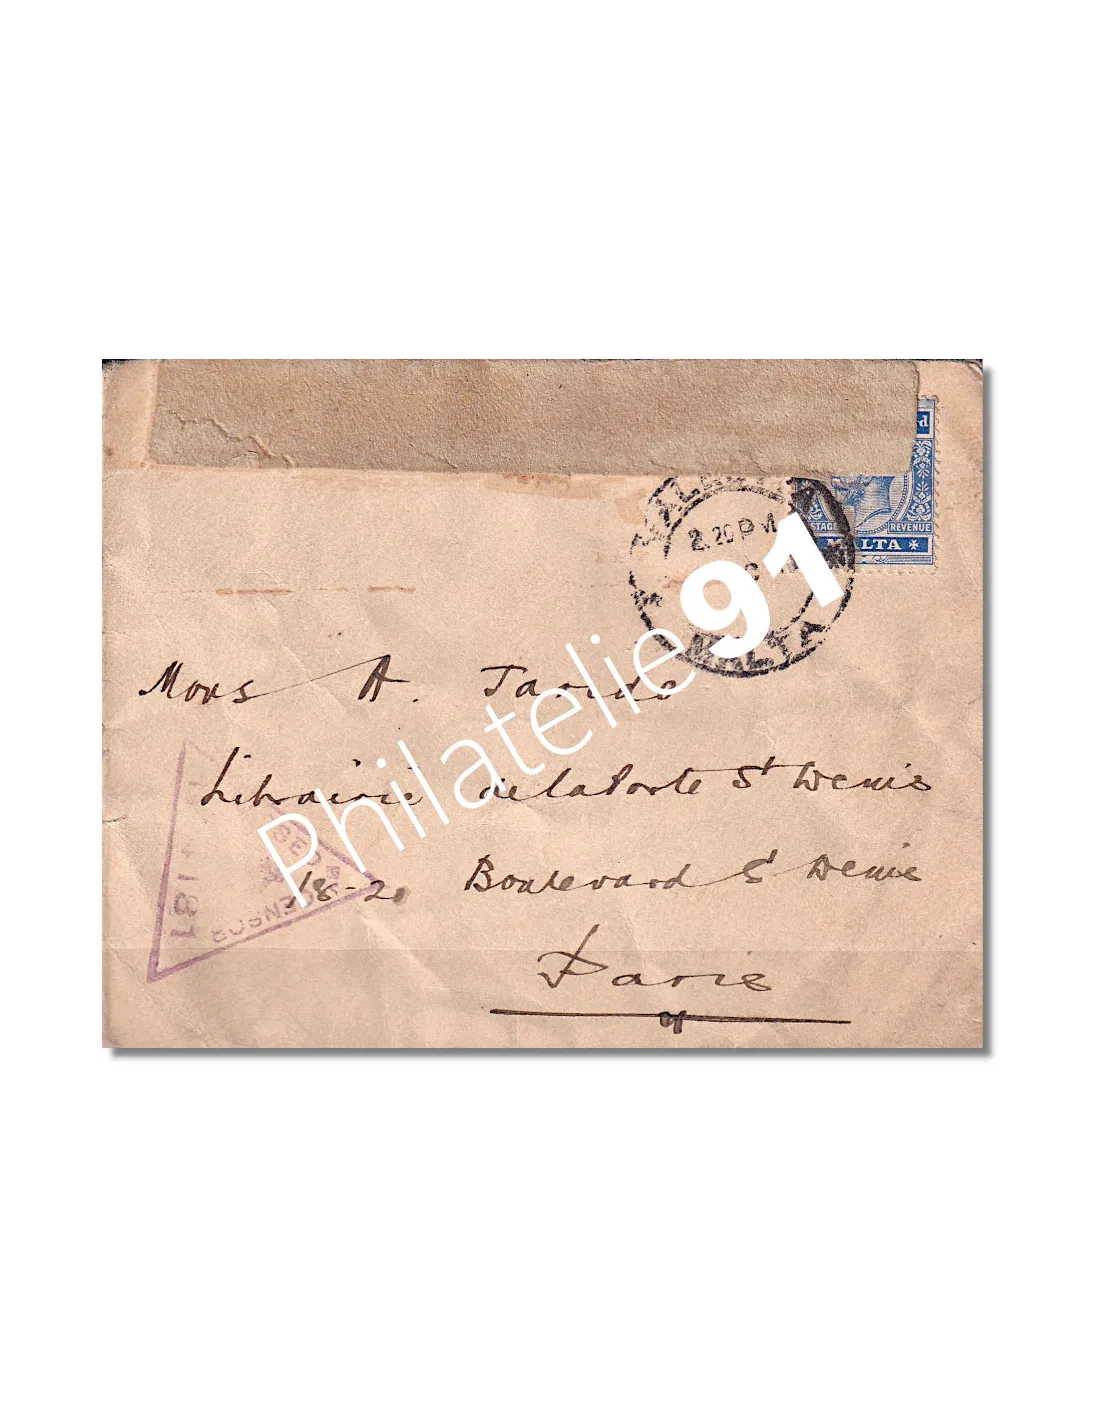 rd
2.20 PM
POSTAGE REVENUE
MALTA
MALTA
Philatelie91
Mons A. Taride
Librairie de la Porte St Denis
18-20 Boulevard St Denis
Paris
CENSOR
181